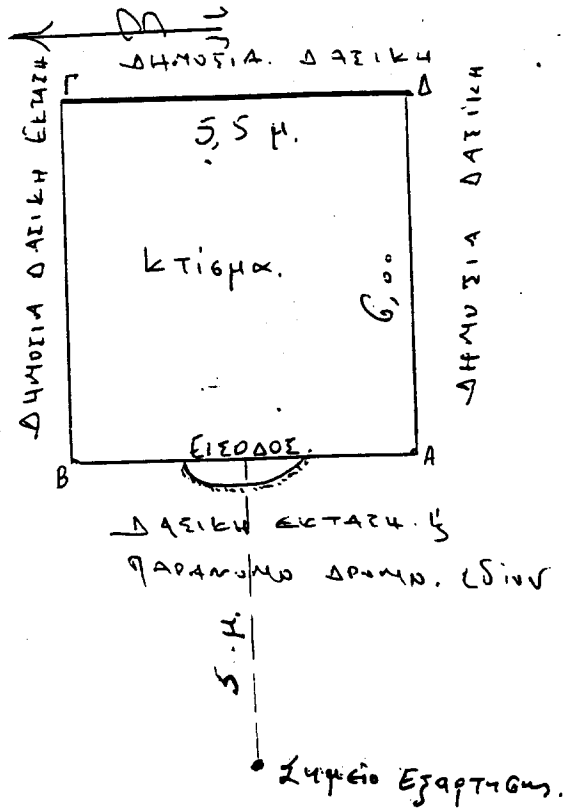 ΔΗΜΟΣΙΑ. ΔΑΣΙΚΗ
Γ
Δ
ΔΗΜΟΣΙΑ ΔΑΣΙΚΗ ΕΚΤΑΣΗ
5,5 μ.
ΔΗΜΟΣΙΑ ΔΑΣΙΚΗ
κτίσμα.
6,00
ΕΙΣΟΔΟΣ.
Β
Α
ΔΑΣΙΚΗ ΕΚΤΑΣΗ.
ΠΑΡΑΝΟΜΟ ΔΡΟΜΟ.
5 μ.
Σημείο Εξαρτησης.